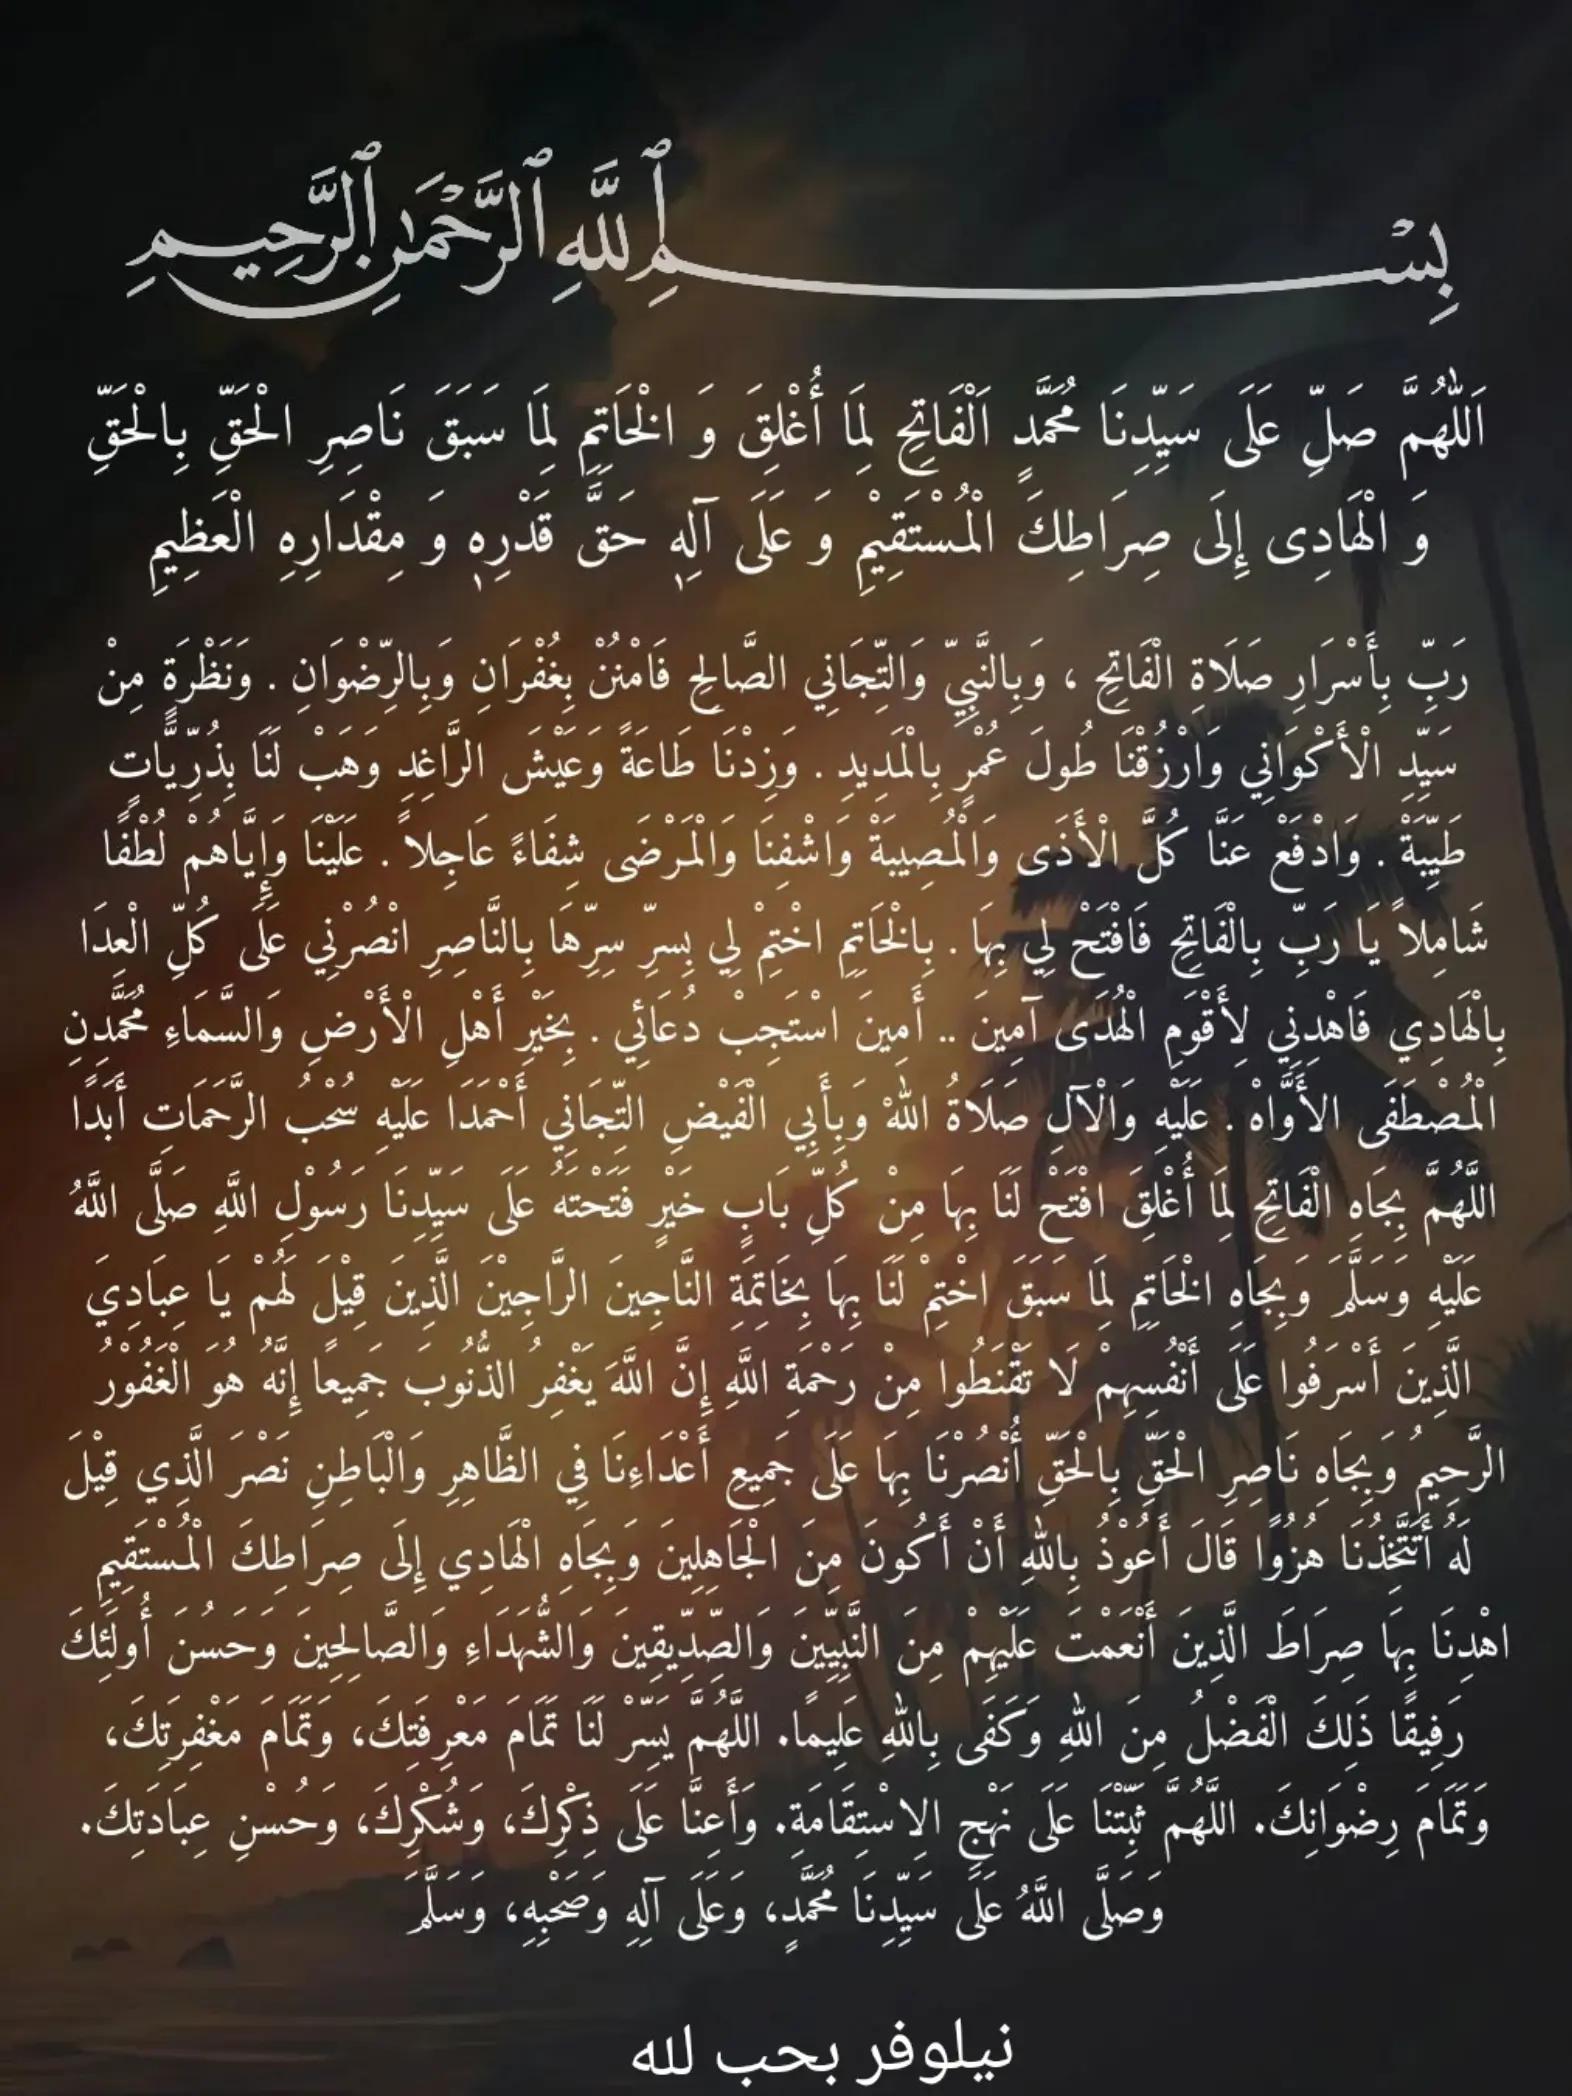 بِسْمِ ٱللَّهِ ٱلرَّحْمَٰنِ ٱلرَّحِيمِ
اَللّٰهُمَّ صَلِّ عَلَى سَيِّدِنَا مُحَمَّدٍ اَلْفَاتِحِ لِمَا أُغْلِقَ وَ الْخَاتِمِ لِمَا سَبَقَ نَاصِرِ الْحَقِّ بِالْحَقِّ
وَ الْهَادِى إِلَى صِرَاطِكَ الْمُسْتَقِيْمِ وَ عَلَى آلِهٖ حَقَّ قَدْرِهٖ وَ مِقْدَارِهِ الْعَظِيمِ
رَبِّ بِأَسْرَارِ صَلَاةِ الْفَاتِحِ ، وَبِالنَّبِيِّ وَالتِّجَانِي الصَّالِحِ فَامْنُنْ بِغُفْرَانِ وَبِالرِّضْوَانِ . وَنَظْرَةٍ مِنْ
سَيِّدِ الْأَكْوَانِي وَارْزُقْنَا طُولَ عُمْرٍ بِالْمَدِيدِ . وَزِدْنَا طَاعَةً وَعَيْشَ الرَّاغِدِ وَهَبْ لَنَا بِذُرِّيَّاتٍ
طَيِّبَةْ . وَادْفَعْ عَنَّا كُلَّ الْأَذَى وَالْمُصِيبَةْ وَاشْفِنَا وَالْمَرْضَى شِفَاءً عَاجِلاً . عَلَيْنَا وَإِيَّاهُمْ لُطْفًا
شَامِلاً يَا رَبِّ بِالْفَاتِحِ فَافْتَحْ لِي بِهَا . بِالْخَاتِمِ اخْتِمْ لِي بِسِرِّ سِرِّهَا بِالنَّاصِرِ انْصُرْنِي عَلَى كُلِّ الْعِدَا
بِالْهَادِي فَاهْدِنِي لِأَقْوَمِ الْهُدَى آمِينَ .. أَمِينَ اسْتَجِبْ دُعَائِي . بِخَيْرِ أَهْلِ الْأَرْضِ وَالسَّمَاءِ مُحَمَّدِنِ
الْمُصْطَفَى الأَوَّاهْ . عَلَيْهِ وَالْآلِ صَلَاةُ اللهْ وَبِأَبِي الْفَيْضِ التِّجَانِي أَحْمَدَا عَلَيْهِ سُحْبُ الرَّحَمَاتِ أَبَدًا
اللَّهُمَّ بِجَاهِ الْفَاتِحِ لِمَا أُغْلِقَ افْتَحْ لَنَا بِهَا مِنْ كُلِّ بَابٍ خَيْرٍ فَتَحْتَهُ عَلَى سَيِّدِنَا رَسُوْلِ اللَّهِ صَلَّى اللَّهُ
عَلَيْهِ وَسَلَّمَ وَبِجَاهِ الْخَاتِمِ لِمَا سَبَقَ اخْتِمْ لَنَا بِهَا بِخَاتِمَةِ النَّاجِينَ الرَّاجِيْنَ الَّذِينَ قِيْلَ لَهُمْ يَا عِبَادِيَ
الَّذِينَ أَسْرَفُوا عَلَى أَنْفُسِهِمْ لَا تَقْنَطُوا مِنْ رَحْمَةِ اللَّهِ إِنَّ اللَّهَ يَغْفِرُ الذُّنُوبَ جَمِيعًا إِنَّهُ هُوَ الْغَفُوْرُ
الرَّحِيمُ وَبِجَاهِ نَاصِرِ الْحَقِّ بِالْحَقِّ أُنْصُرْنَا بِهَا عَلَى جَمِيعِ أَعْدَاءِنَا فِي الظَّاهِرِ وَالْبَاطِنِ نَصْرَ الَّذِي قِيْلَ
لَهُ أَتَتَّخِذُنَا هُزُوًا قَالَ أَعُوْذُ بِاللهِ أَنْ أَكُونَ مِنَ الْجَاهِلِينَ وَبِجَاهِ الْهَادِي إِلَى صِرَاطِكَ الْمُسْتَقِيمِ
اهْدِنَا بِهَا صِرَاطَ الَّذِينَ أَنْعَمْتَ عَلَيْهِمْ مِنَ النَّبِيِّينَ وَالصِّدِّيقِينَ وَالشُّهَدَاءِ وَالصَّالِحِينَ وَحَسُنَ أُولَئِكَ
رَفِيقًا ذَلِكَ الْفَضْلُ مِنَ اللهِ وَكَفَى بِاللهِ عَلِيمًا. اللَّهُمَّ يَسِّرْ لَنَا تَمَامَ مَعْرِفَتِكَ، وَتَمَامَ مَغْفِرَتِكَ،
وَتَمَامَ رِضْوَانِكَ. اللَّهُمَّ ثَبِّتْنَا عَلَى نَهْجِ الِاسْتِقَامَةِ. وَأَعِنَّا عَلَى ذِكْرِكَ، وَشُكْرِكَ، وَحُسْنِ عِبَادَتِكَ.
وَصَلَّى اللَّهُ عَلَى سَيِّدِنَا مُحَمَّدٍ، وَعَلَى آلِهِ وَصَحْبِهِ، وَسَلَّمَ
نيلوفر بحب لله